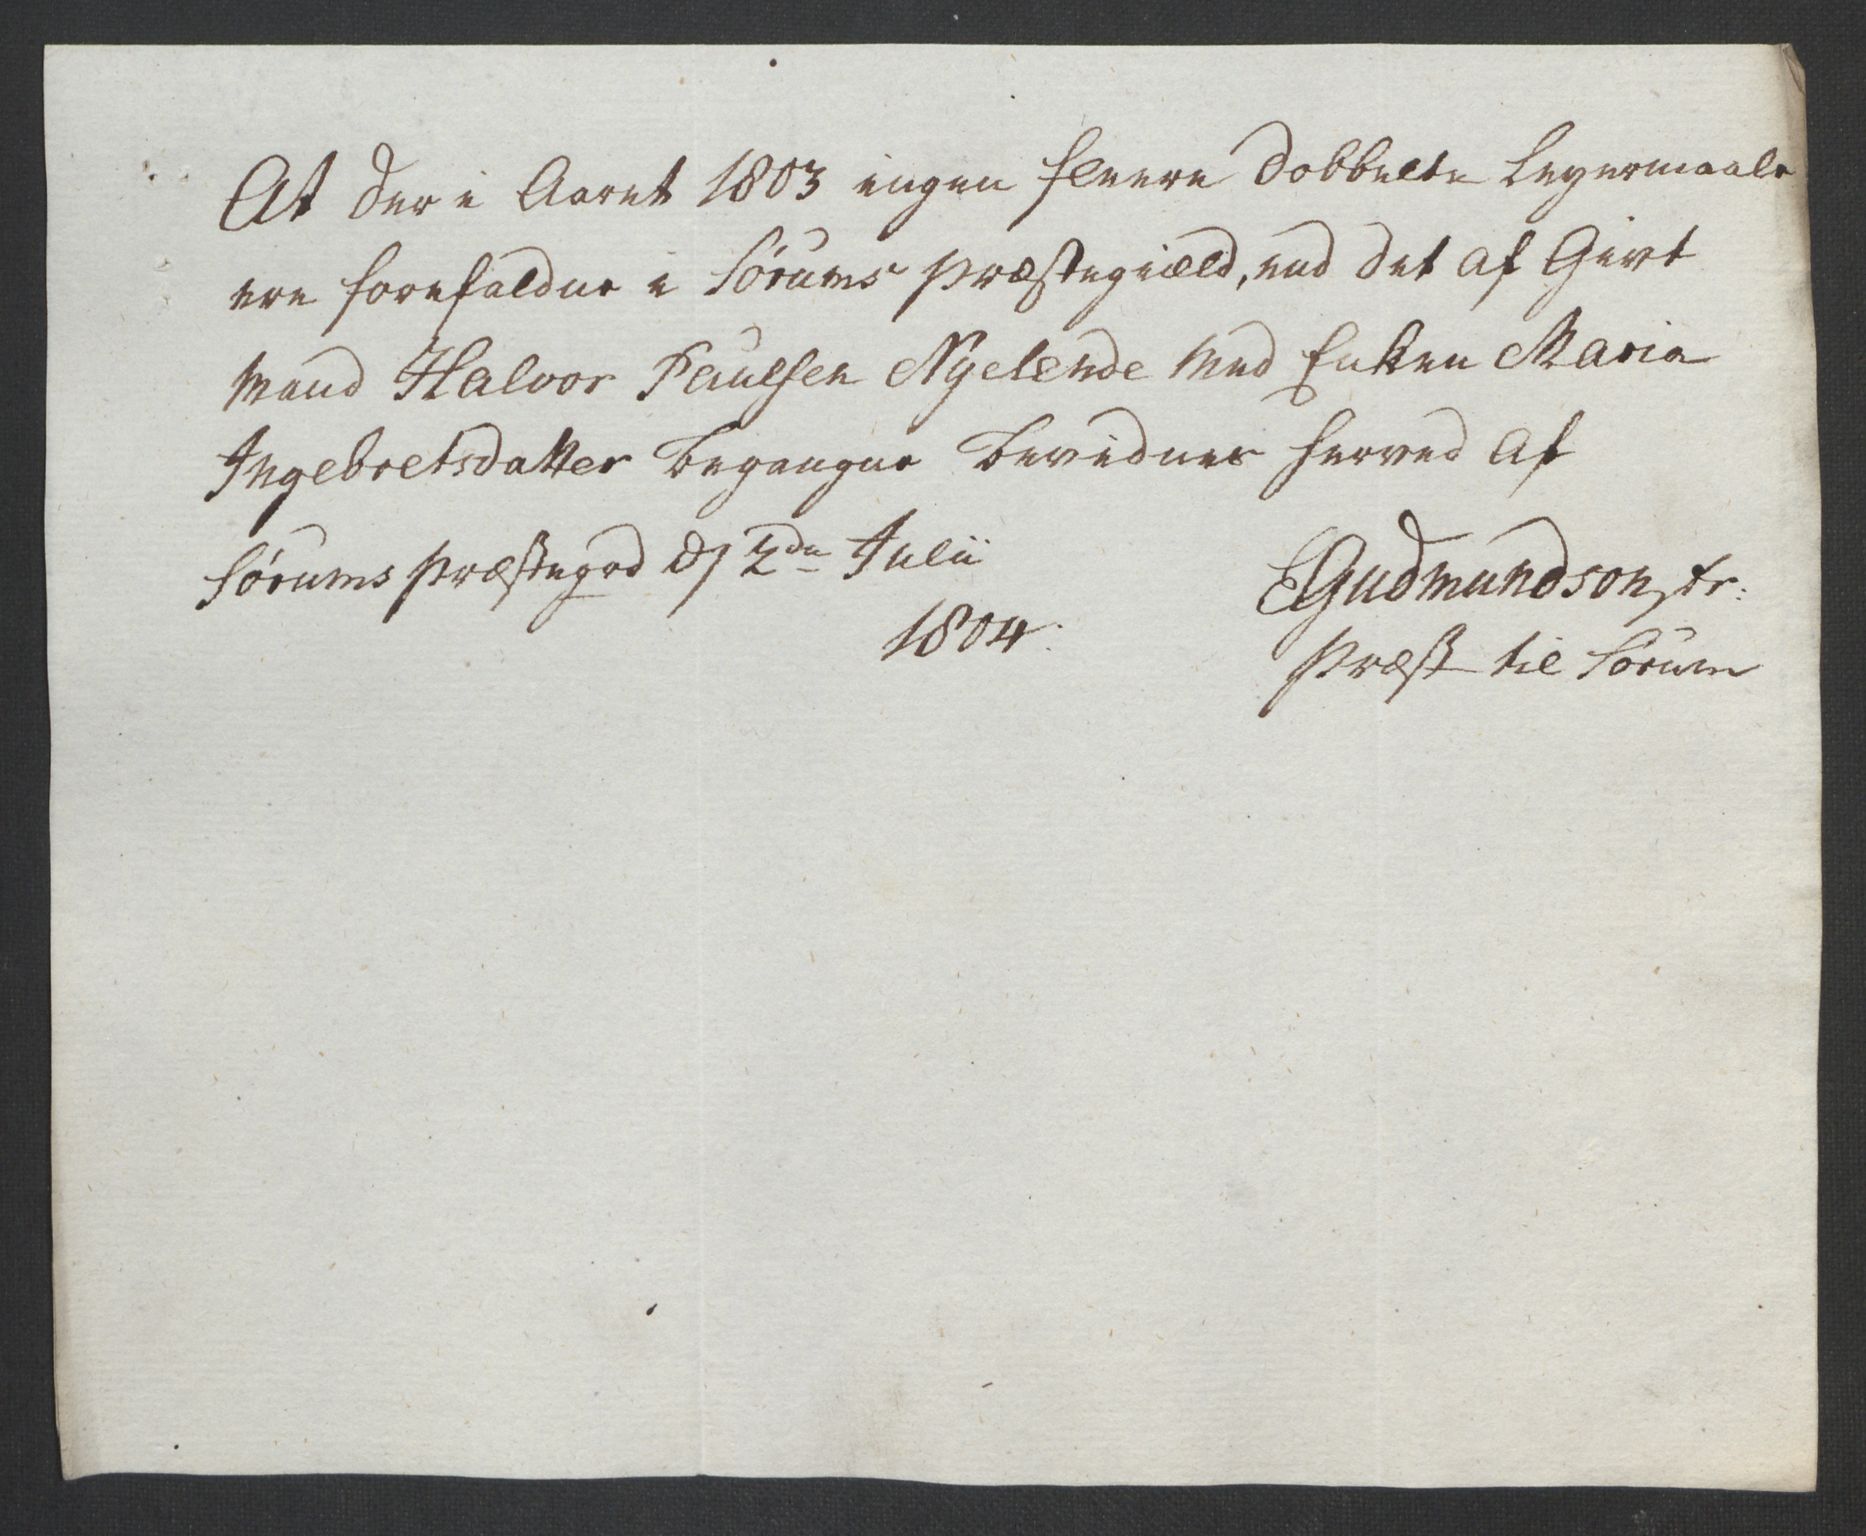 At der i Aaret 1803 ingen fleere dobbelte Leyermaale
ere forefaldne i Sørums Præstegiæld, end det af Givt
Mand Halvor Paulsen Nyelende med Enken Maria
Ingebretsdatter begangne bevidnes herved af
Sørums Præstegrd d 2den Julii
1804.
EGudmundson
Præst til Sørum